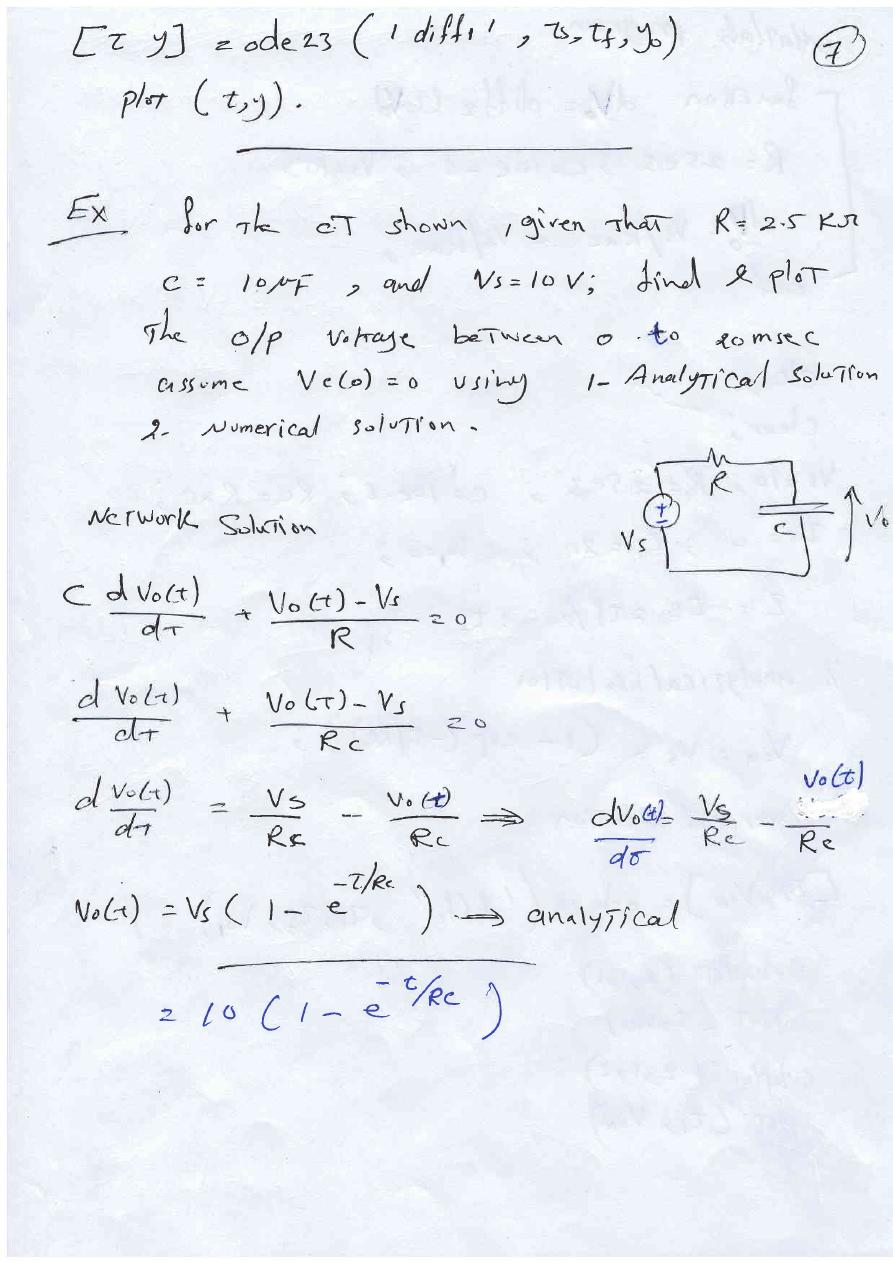 [t y] = ode23 ( 'diff1', ts, tf, y₀)
7
plot (t,y).
Ex for The cT shown, given That R = 2.5 KΩ
C = 10 μF, and Vs = 10 V; find & plot
The o/p Voltage between 0 to 20 msec
assume Vc(0) = 0 using 1- Analytical Solution
2- Numerical solution.
R
Vs + C Vo
Network Solution
C dVo(t)/dt + (Vo(t) - Vs)/R = 0
dVo(t)/dt + (Vo(t) - Vs)/RC = 0
dVo(t)/dt = Vs/RC - Vo(t)/RC ⇒ dVo(t)/dt = Vs/RC - Vo(t)/RC
Vo(t) = Vs ( 1 - e^(-t/RC) ) ⇒ analytical
= 10 ( 1 - e^(-t/RC) )